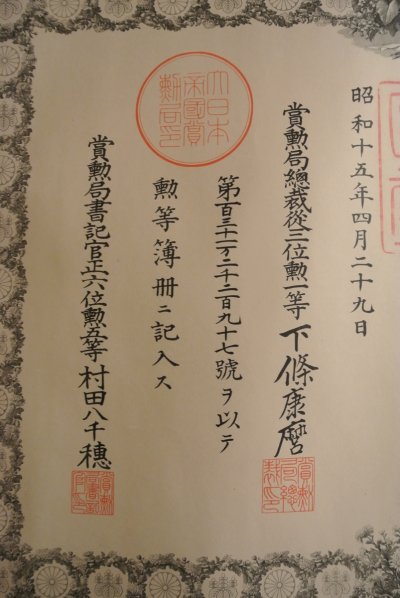 昭和十五年四月二十九日
賞勲局總裁從三位勲一等下條康麿
第百三十一万二千二百九十七號ヲ以テ
勲等簿冊ニ記入ス
賞勲局書記官正六位勲五等村田八千穗
大日本
帝國賞
勲局印
賞勲
局總
裁印